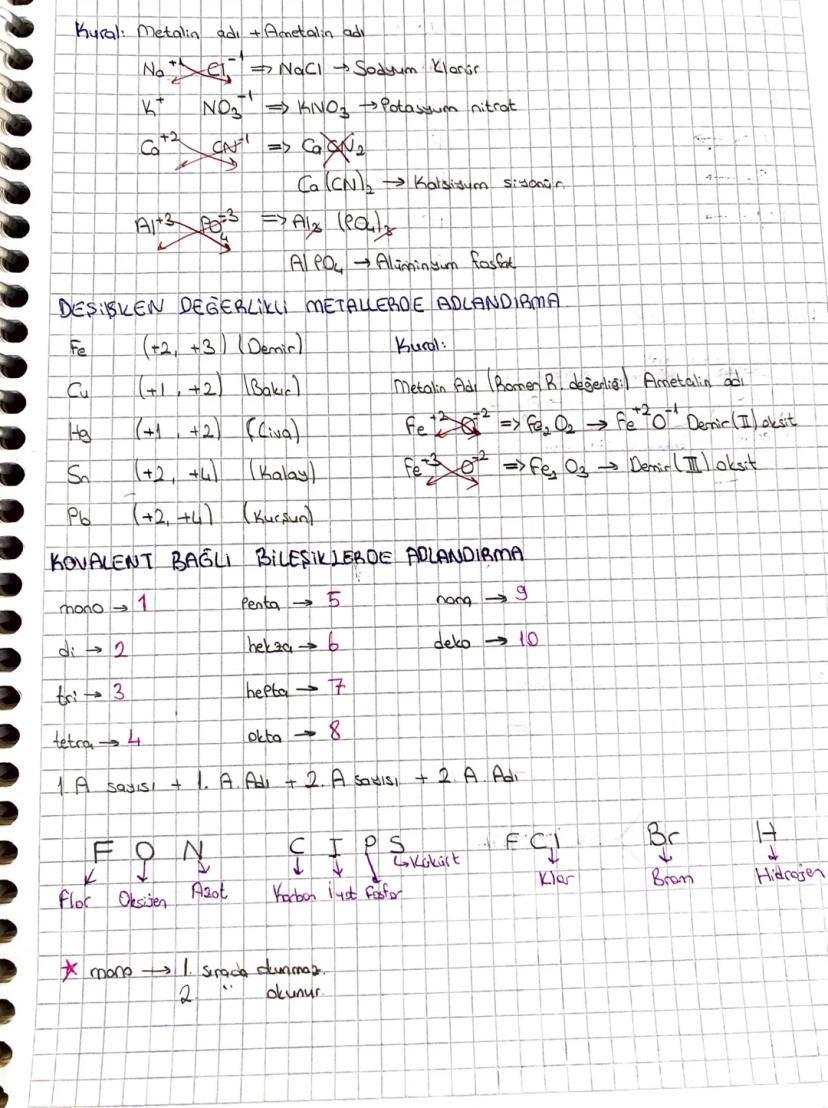 Kural: Metalin adı + Ametalin adı
Na⁺¹ Cl⁻¹ => NaCl → Sodyum Klorür
K⁺ NO₃⁻¹ => KNO₃ → Potasyum nitrat
Ca⁺² CN⁻¹ => CaCN₂
Ca(CN)₂ → Kalsiyum siyanür
Al⁺³ PO₄⁻³ => Al₃ (PO₄)₃
AlPO₄ → Alüminyum fosfat
DEĞİŞKEN DEĞERLİKLİ METALLERDE ADLANDIRMA
Fe (+2, +3) (Demir) Kural:
Cu (+1, +2) (Bakır) Metalin Adı (Romen R. değerliği) Ametalin adı
Hg (+1, +2) (Civa) Fe⁺² O⁻² => Fe₂O₂ → Fe⁺²O⁻¹ Demir(II) oksit
Sn (+2, +4) (Kalay) Fe⁺³ O⁻² => Fe₂O₃ → Demir(III) oksit
Pb (+2, +4) (Kurşun)
KOVALENT BAĞLI BİLEŞİKLERDE ADLANDIRMA
mono → 1 penta → 5 nona → 9
di → 2 hekza → 6 deko → 10
tri → 3 hepta → 7
tetra → 4 okta → 8
1 A sayısı + 1. A. Adı + 2. A sayısı + 2. A. Adı
F O N C I P S F Cl Br H
Flor Oksijen Azot Karbon İyot Fosfor Kükürt Klor Brom Hidrojen
★ mono → 1. sırada olunmaz.
2. " okunur.